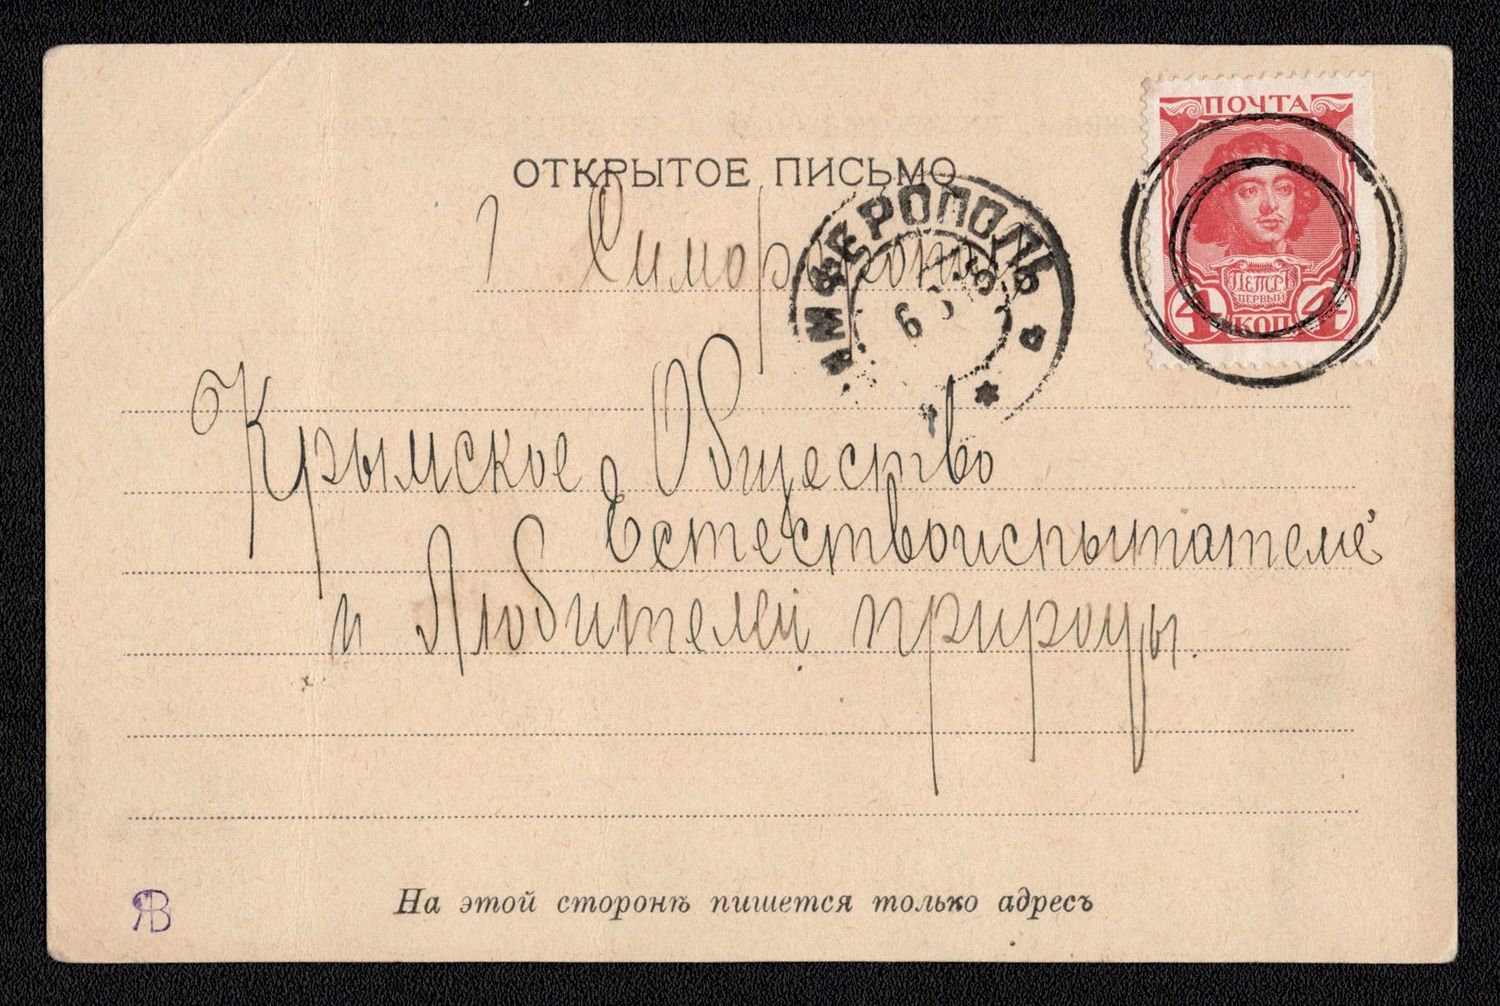 ПОЧТА
ОТКРЫТОЕ ПИСЬМО
ИМФЕРОПОЛЬ
ПЕТРЪ
ПЕРВЫЙ
4 КОП 4
Крымское Общество
Естествоиспытателе
и Любителей природы.
На этой сторонѣ пишется только адресъ